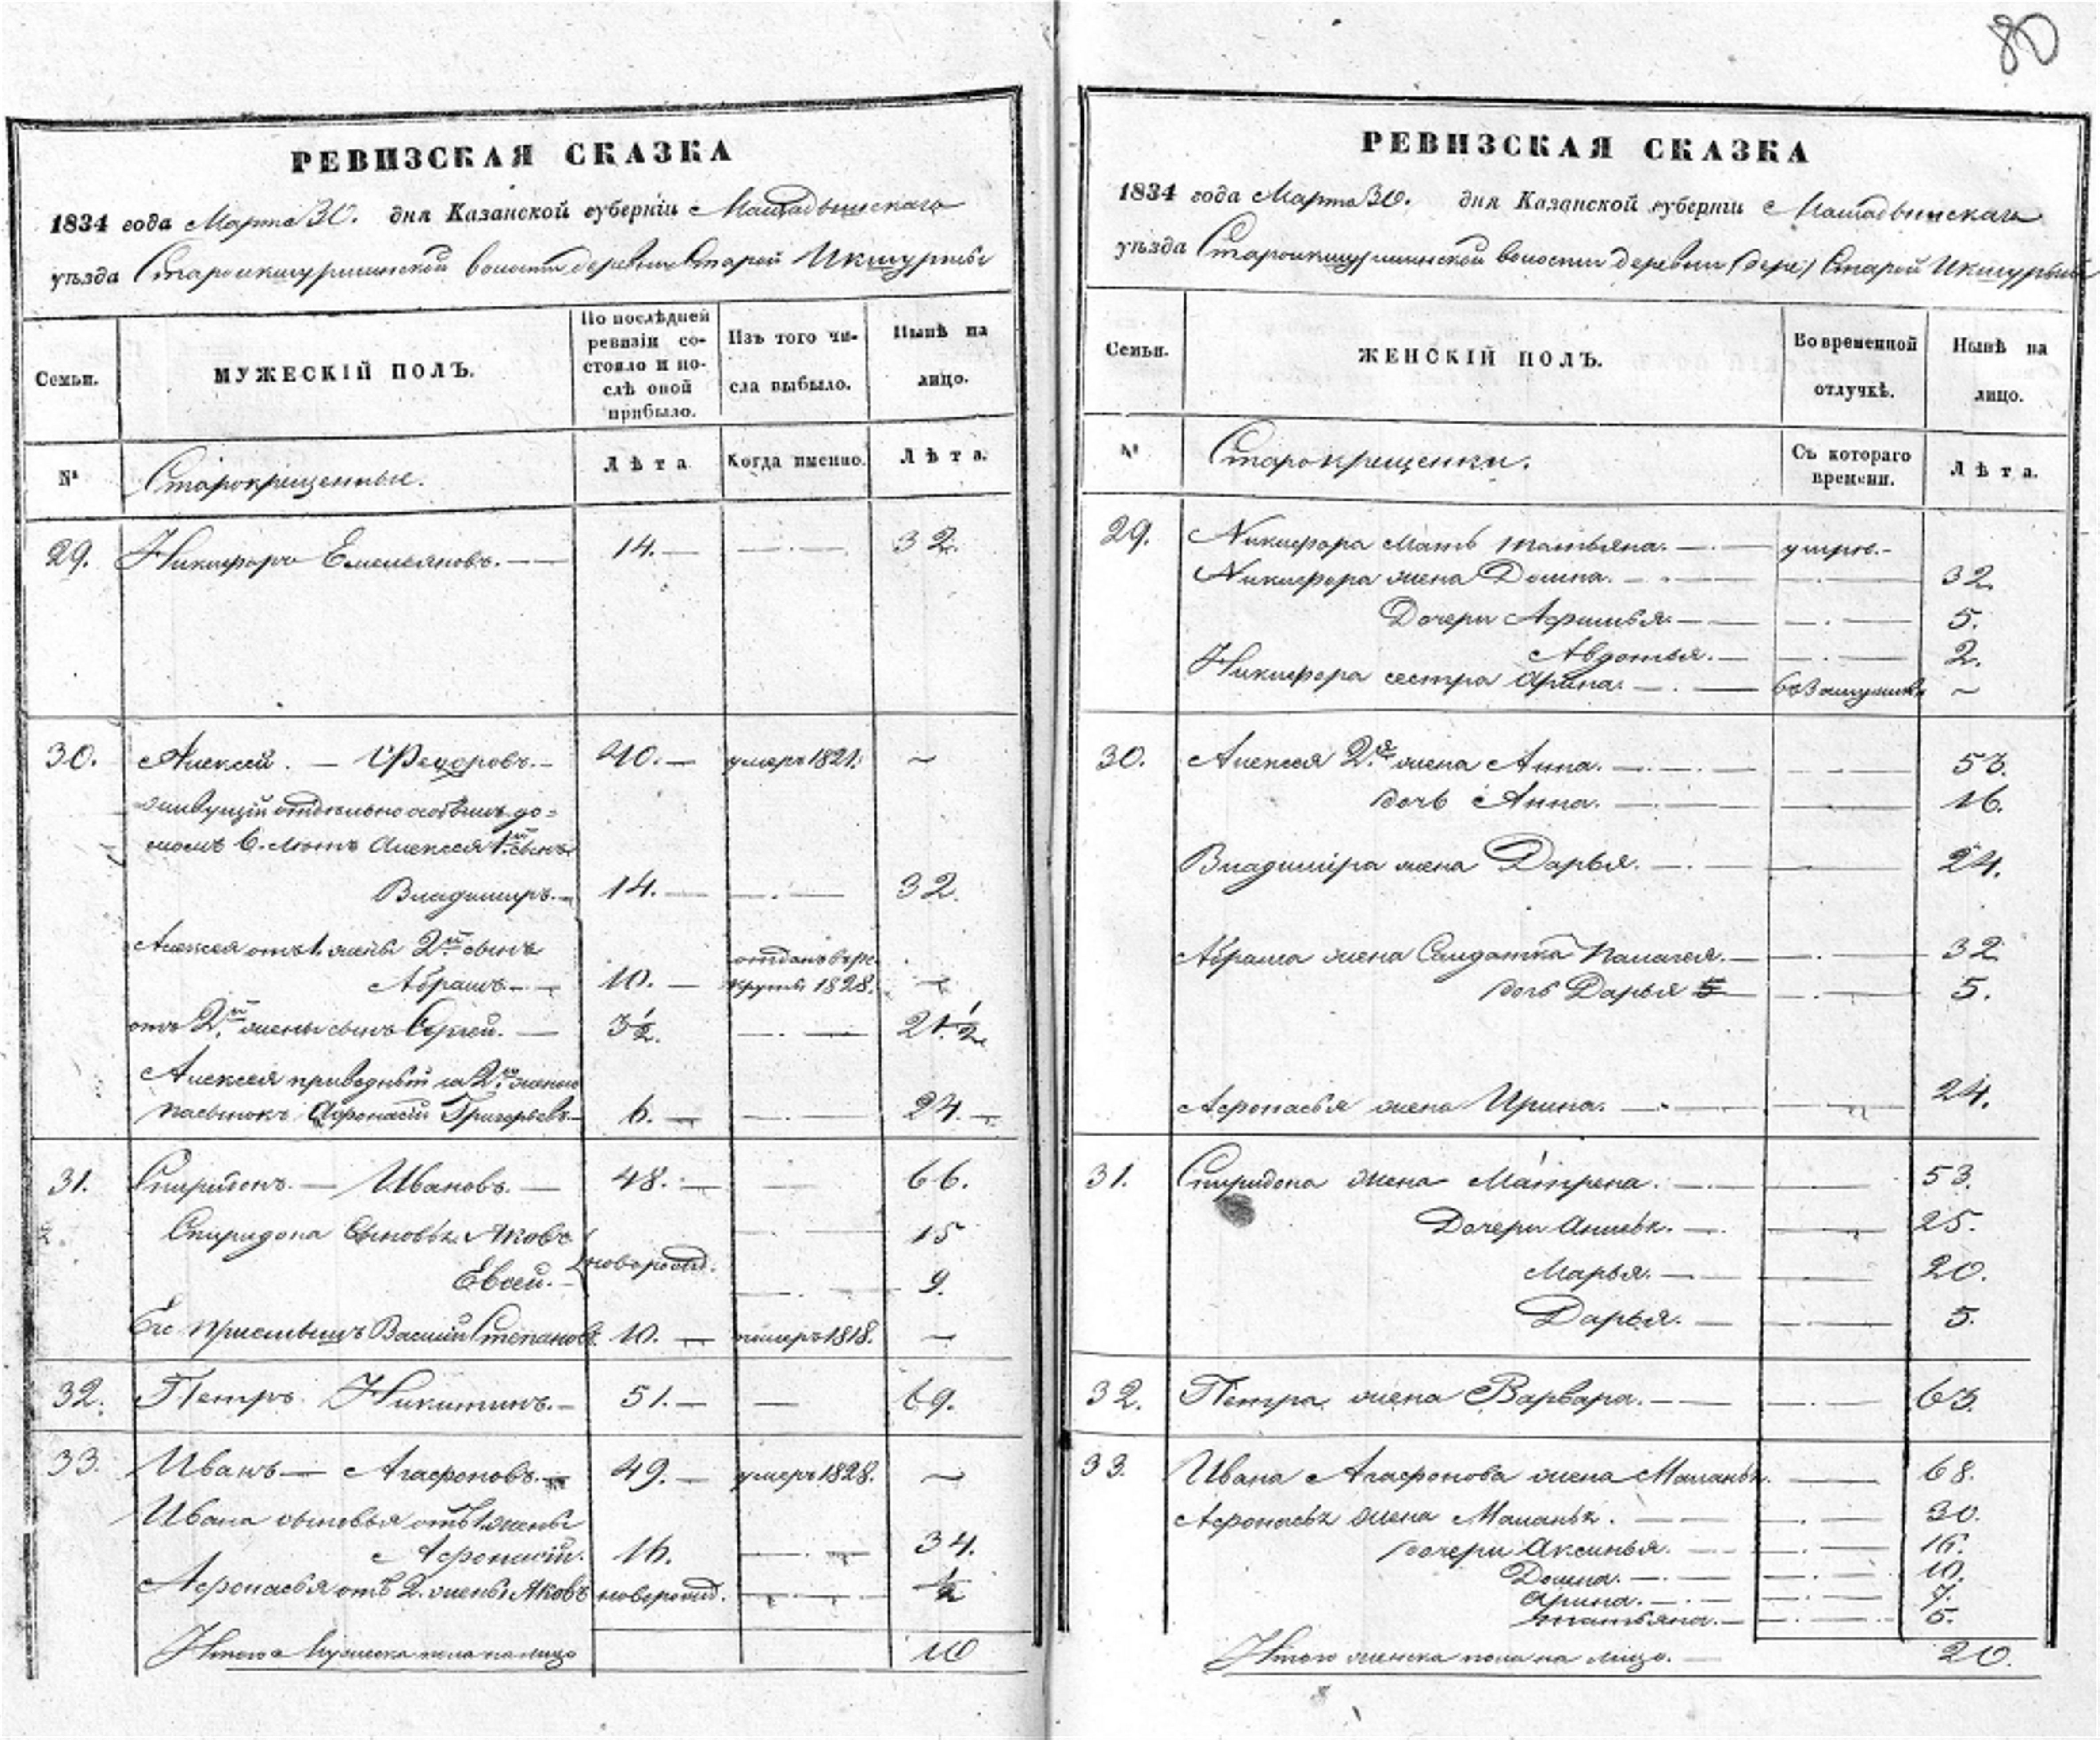 80
РЕВИЗСКАЯ СКАЗКА
1834 года Марта 30. дня Казанской губерніи Мамадышскаго
уѣзда Староикшурминской волости деревни Старой Икшурмы
Семьи.
МУЖЕСКІЙ ПОЛЪ.
По послѣдней ревизіи состояло и послѣ оной прибыло.
Изъ того числа выбыло.
Нынѣ на лицо.
№
Старокрещенные.
Лѣта
Когда именно.
Лѣта.
29. Никифоръ Емельяновъ. 14. 32.
30. Алексей Федоровъ. 40. умеръ 1821.
живущій отдельно особымъ до=
момъ Алексея 1й сынъ
Владимиръ. 14. 32.
Алексея отъ 1 жены 2й сынъ
Абрамъ. 10. отданъ въ рекруты 1828.
отъ 2й жены сынъ Сергей. 3½. 21½
Алексея приводный 2й женою
пасынокъ Афонасій Григорьевъ 6. 24.
31. Спиридонъ Ивановъ. 48. 66.
Спиридона сыновья Яковъ 15
Евсей. новорожд. 9.
Его приемышъ Василій Степановъ 10. померъ 1818.
32. Петръ Никитинъ. 51. 69.
33. Иванъ Агафоновъ. 49. умеръ 1828.
Ивана сыновья отъ 1 жены
Афонасій. 16. 34.
Афонасья отъ 2. жены Яковъ новорожд. ½
Итого мужеска пола на лицо 10
РЕВИЗСКАЯ СКАЗКА
1834 года Марта 30. дня Казанской губерніи Мамадышскаго
уѣзда Староикшурминской волости деревни Старой Икшурмы
Семьи.
ЖЕНСКІЙ ПОЛЪ.
Во временной отлучкѣ.
Нынѣ на лицо.
№
Старокрещенки.
Съ котораго времени.
Лѣта.
29. Никифора мать Татьяна. умре.
Никифора жена Домна. 32
Дочери Афимья. 5.
Авдотья. 2.
Никифора сестра Арина. въ замужестве
30. Алексея 2я жена Анна. 53.
дочь Анна. 16.
Владимира жена Дарья. 24.
Абрама жена Солдатка Палагея. 32
дочь Дарья 5.
Афонасья жена Ирина. 24.
31. Спиридона жена Матрена. 53.
Дочери 25.
Марья. 20.
Дарья. 5.
32. Петра жена Варвара. 63.
33. Ивана Агафонова жена Маланья. 68.
Афонасья жена Маланья. 30.
дочери Аксинья. 16.
Домна. 10.
Арина. 7.
Татьяна. 5.
Итого женска пола на лицо. 20.